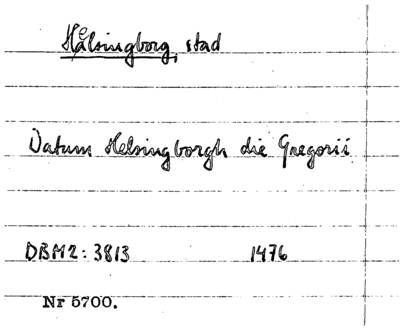 Hälsingborg, stad
Datum Helsingborgh die Gregorii
DBM2: 3813 1476
Nr 5700.